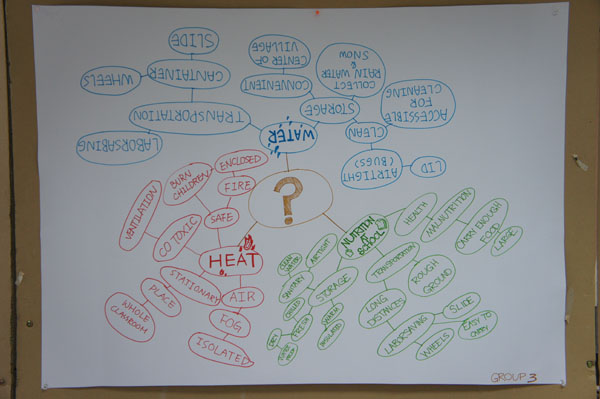 SLIDE
WHEELS
CANTAINER
TRANSPORTATION
LABORSABING
WATER
CENTER OF
VILLAGE
CONVENIENT
STORAGE
COLLECT
RAIN WATER
&
SNOW
CLEAN
ACCESSIBLE
FOR
CLEANING
AIRTIGHT
(BUGS)
LID
?
ENCLOSED
BURN
CHILDREN
FIRE
SAFE
VENTILATION
CO TOXIC
HEAT
STATIONARY
PLACE
WHOLE
CLASSROOM
AIR
FOG
ISOLATED
NUTRITION
AT
SCHOOL
HEALTH
MALNUTRITION
CARRY ENOUGH
FOOD
LARGE
TRANSPORTATION
ROUGH
GROUND
LONG
DISTANCES
LABORSAVING
SLIDE
WHEELS
EASY TO
CARRY
STORAGE
AIRTIGHT
SANITARY
CLEAN
WATER
FRESH
DRY
GROUP 3